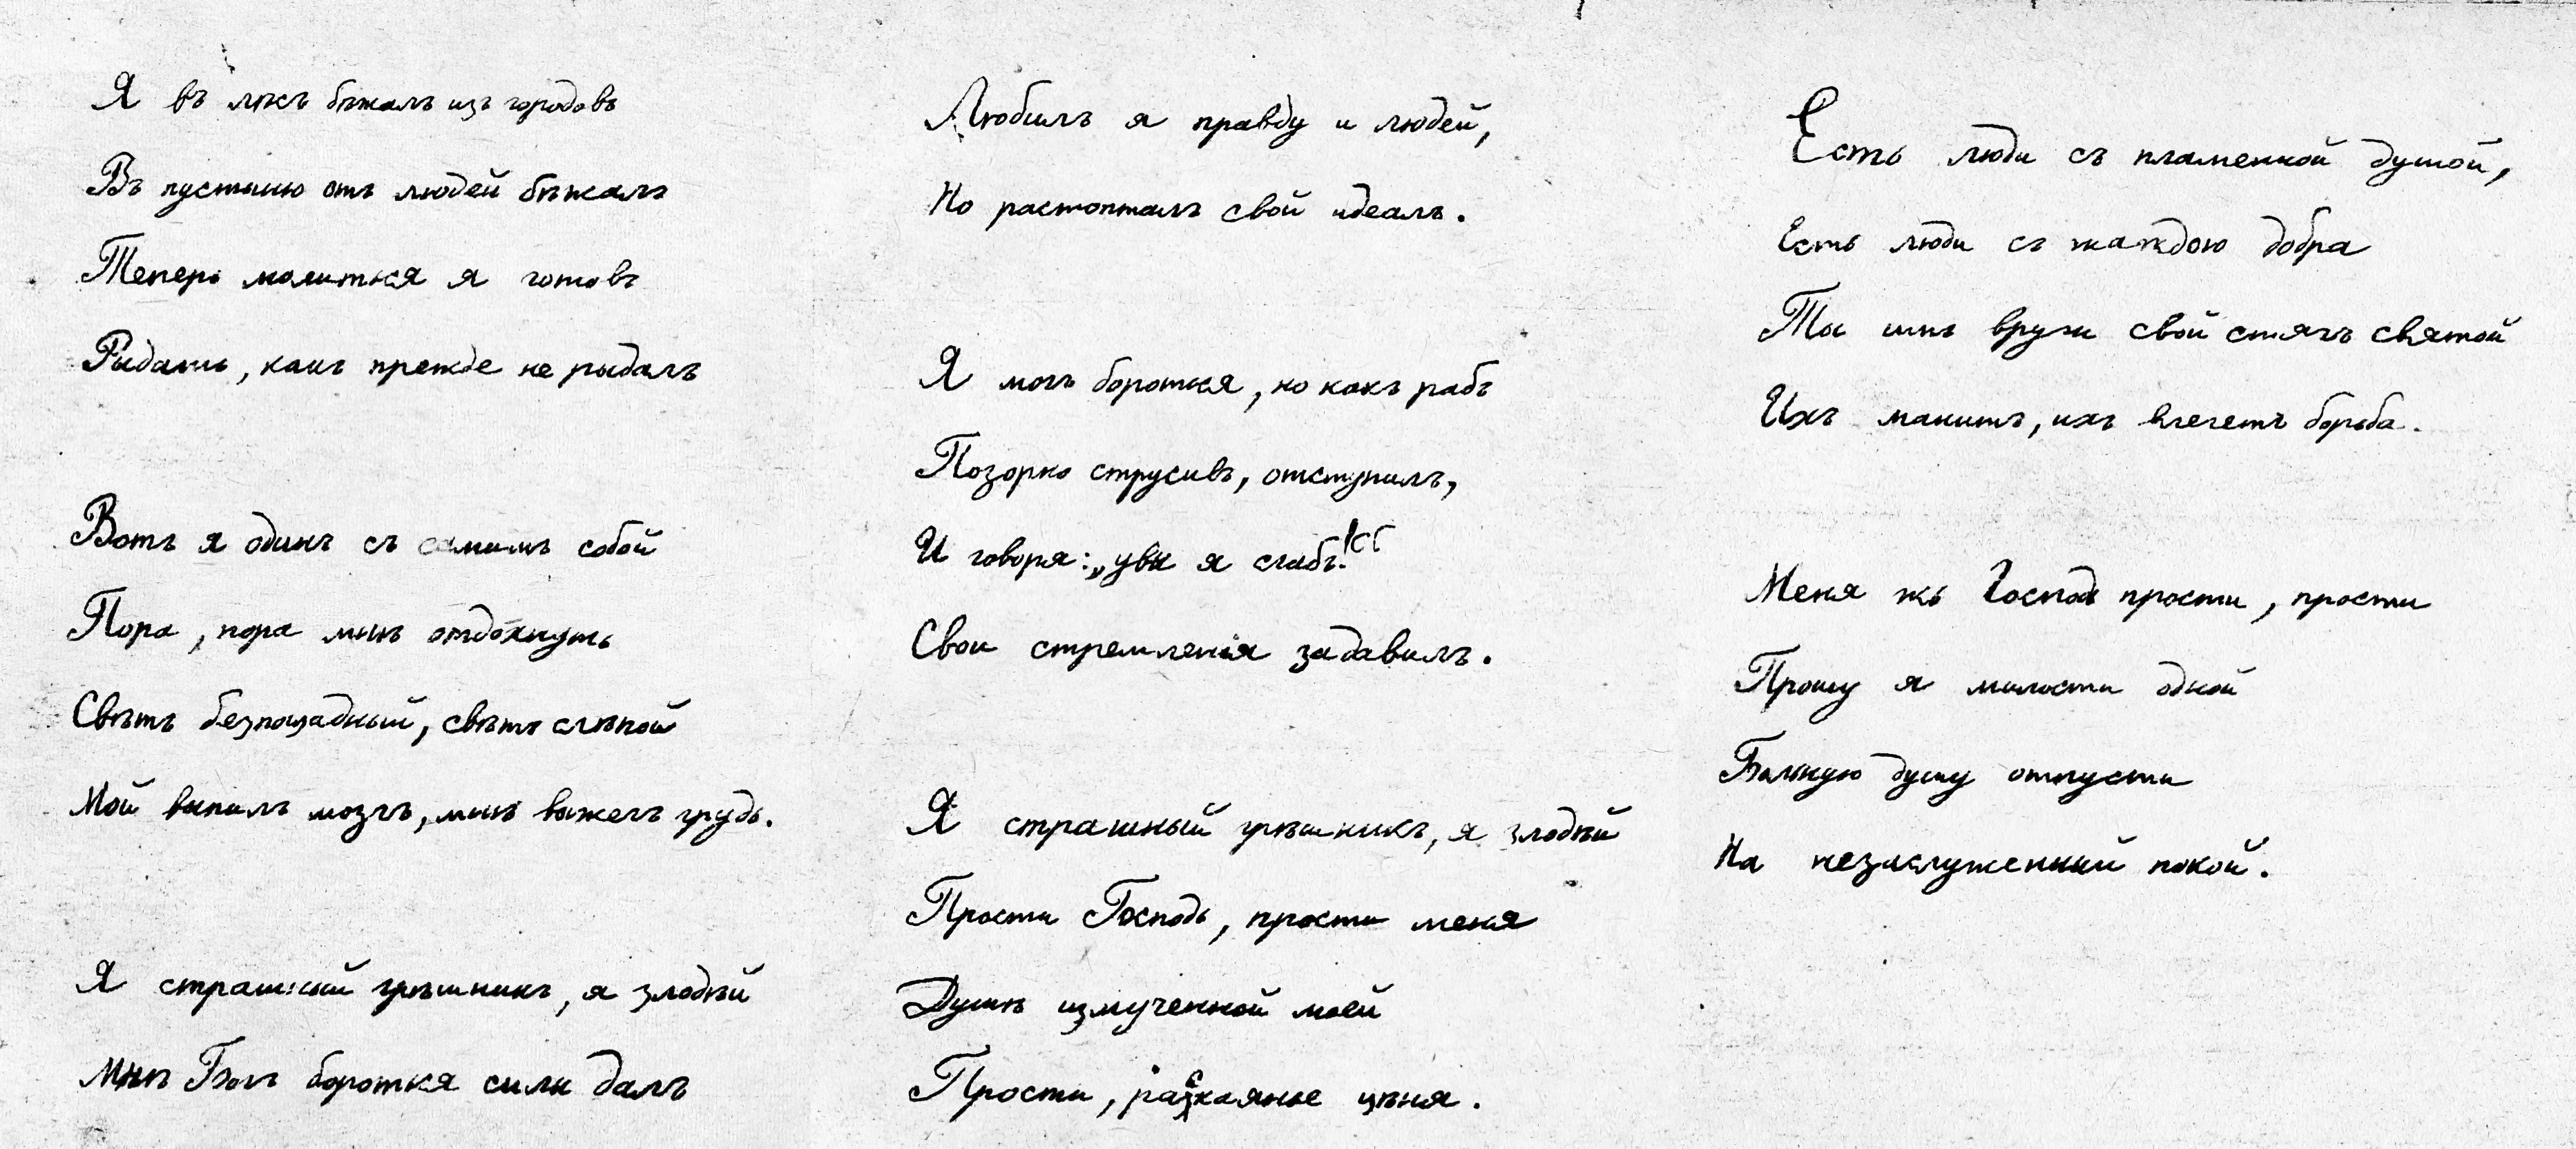 Я въ лѣсъ бѣжалъ изъ городовъ
Въ пустыню отъ людей бѣжалъ
Теперь молиться я готовъ
Рыдать, какъ прежде не рыдалъ
Вотъ я одинъ съ самимъ собой
Пора, пора мнѣ отдохнуть
Свѣтъ безпощадный, свѣтъ слѣпой
Мой выпилъ мозгъ, мнѣ выжегъ грудь.
Я страшный грѣшникъ, я злодѣй
Мнѣ Богъ бороться силы далъ
Любилъ я правду и людей,
Но растопталъ свой идеалъ.
Я могъ бороться, но какъ рабъ
Позорно струсивъ, отступилъ,
И говоря: „увы я слабъ!“
Свои стремленія задавилъ.
Я страшный грѣшникъ, я злодѣй
Прости Господь, прости меня
Душѣ измученной моей
Прости, раскаянье цѣня.
Есть люди съ пламенной душой,
Есть люди съ жаждою добра
Ты имъ вручи свой стягъ святой
Ихъ манитъ, ихъ влечетъ борьба.
Меня жь Господь прости, прости
Прошу я милости одной
Больную душу отпусти
На незаслуженный покой.